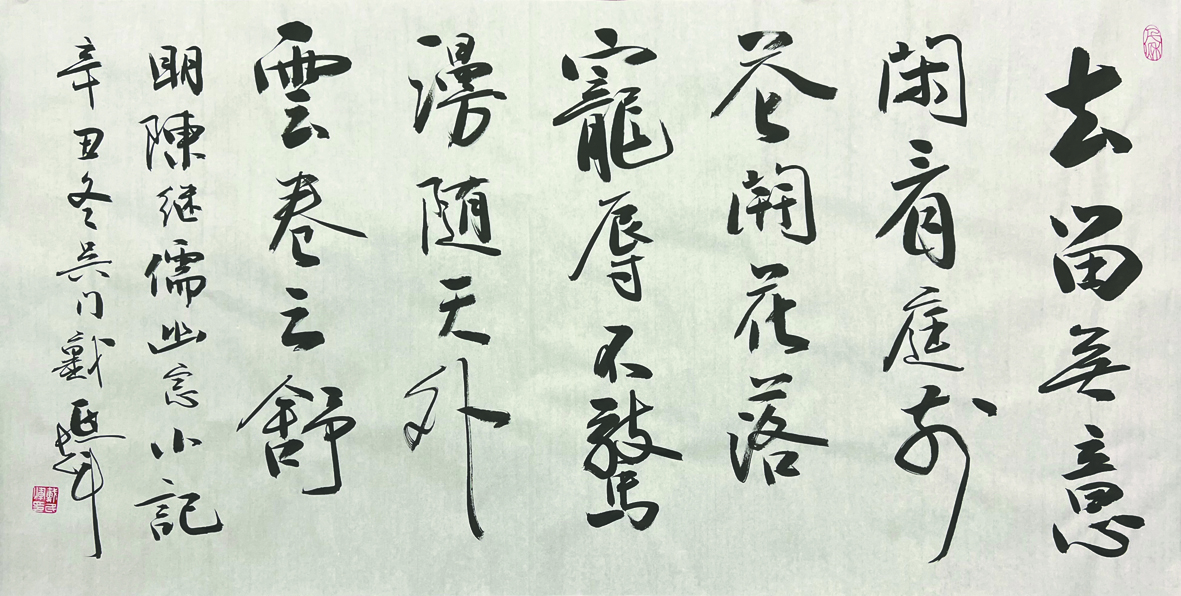 去留無意
閑看庭前
花開花落
寵辱不驚
漫随天外
雲卷云舒
明陳继儒幽窗小記
辛丑冬吴门戴